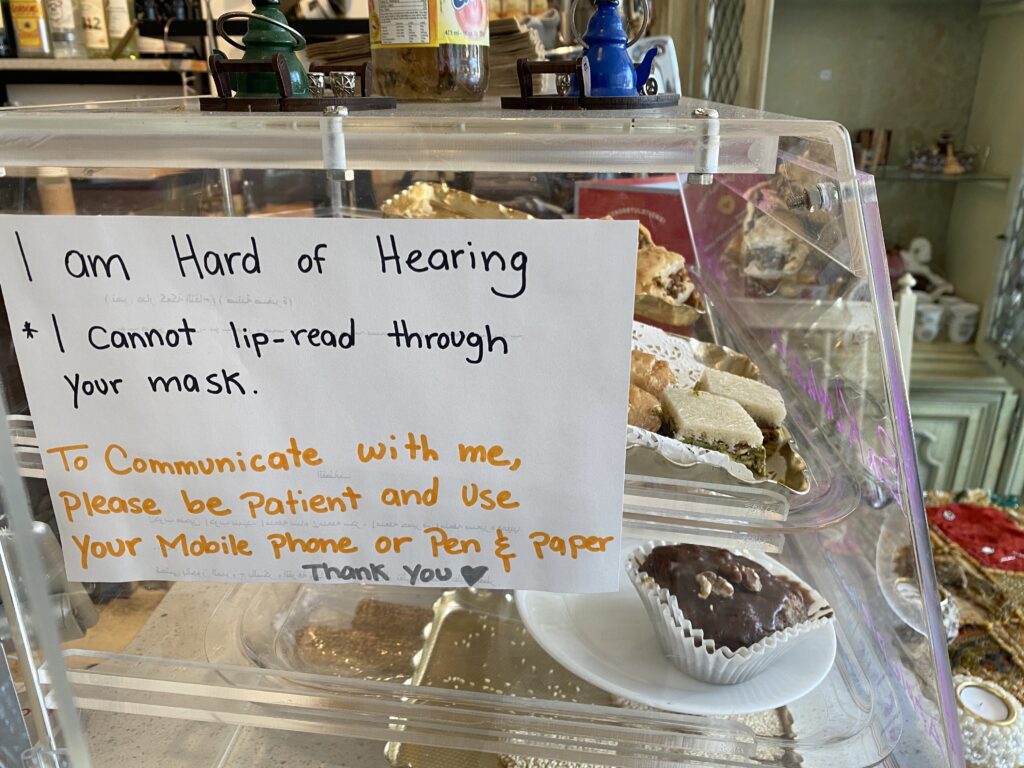 I am Hard of Hearing
* I cannot lip-read through
your mask.
To Communicate with me,
please be patient and use
your Mobile Phone or Pen & paper
Thank You ♥